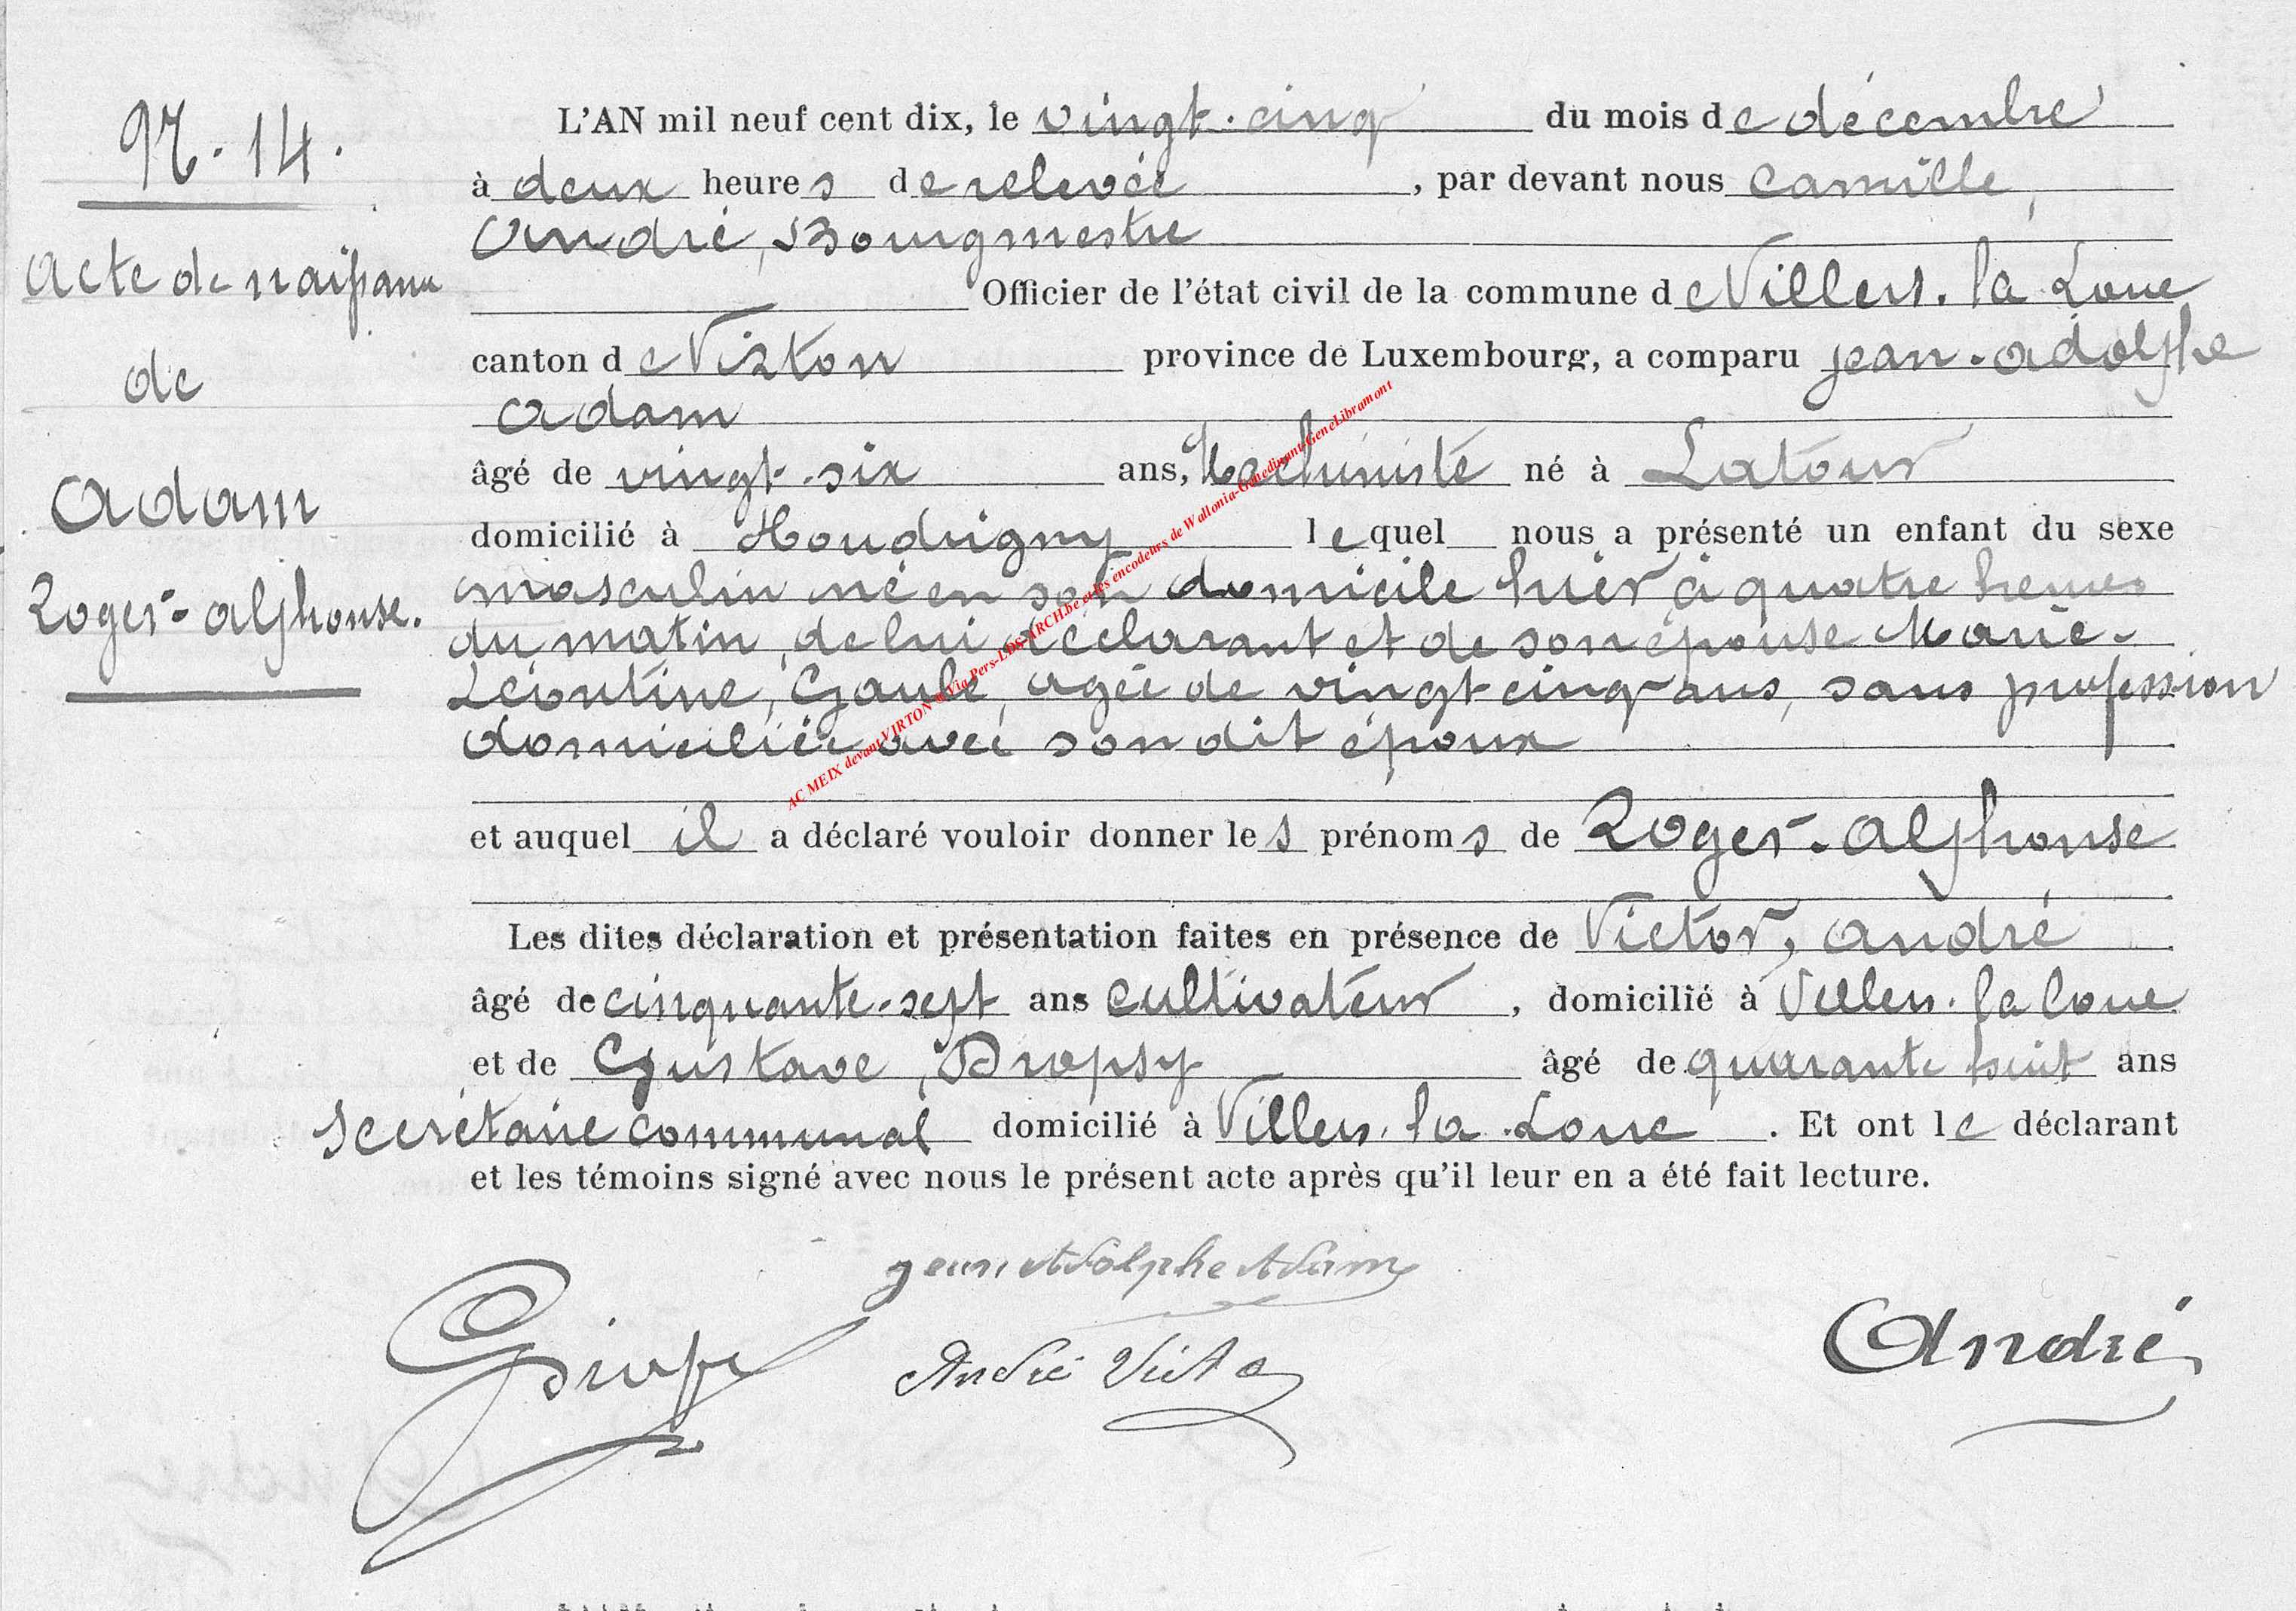 N. 14.
Acte de naissance
de
Adam
Roger-Alphonse.
L'AN mil neuf cent dix, le vingt-cinq du mois de décembre
à deux heures de relevée, par devant nous Camille,
André, Bourgmestre
Officier de l'état civil de la commune de Villers-la-Loue
canton de Virton province de Luxembourg, a comparu Jean-Adolphe
Adam
âgé de vingt-six ans, Machiniste né à Latour
domicilié à Houdrigny lequel nous a présenté un enfant du sexe
masculin né en son domicile hier à quatre heures
du matin, de lui déclarant et de son épouse Marie-
Léontine, Gaule, agée de vingt cinq ans, sans profession
domiciliée avec son dit époux
et auquel il a déclaré vouloir donner les prénoms de Roger-Alphonse
Les dites déclaration et présentation faites en présence de Victor, André
âgé de cinquante-sept ans cultivateur, domicilié à Villers-la-Loue
et de Gustave, Dropsy âgé de quarante huit ans
secrétaire communal domicilié à Villers-la-Loue. Et ont le déclarant
et les témoins signé avec nous le présent acte après qu'il leur en a été fait lecture.
Jean Adolphe Adam
André Victor
André
AC MEIX devant VIRTON Via Pers-LDS-ARCH.be et les encodeurs de Wallonia-Genedinant-GeneLibramont